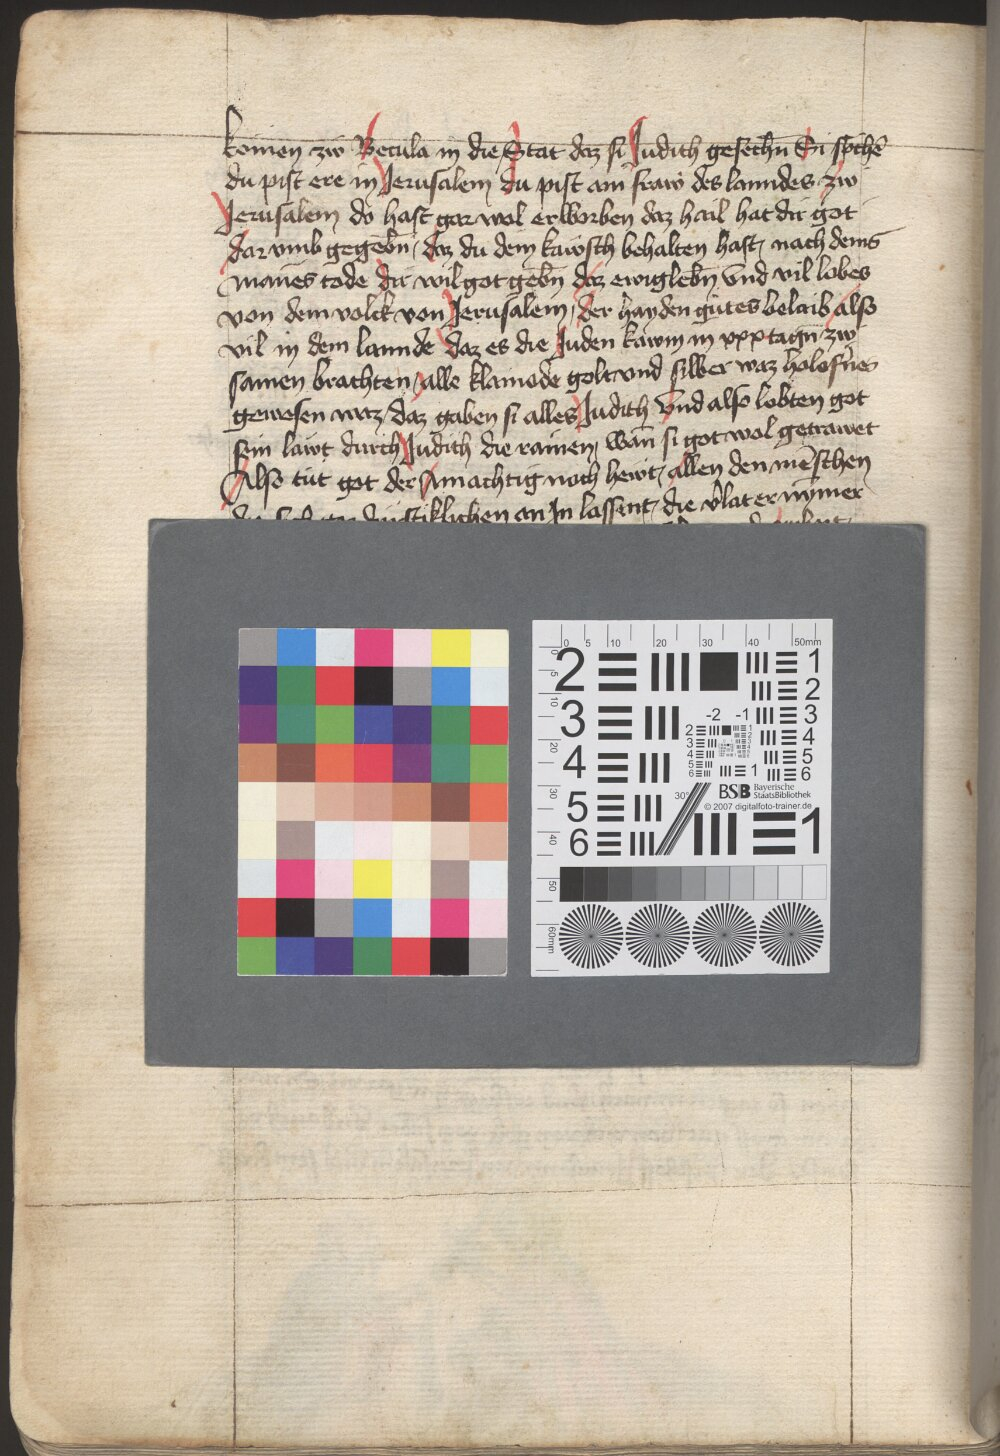 komen zw Betula in die Stat daz si Judith gesechn̄ Si sprͨhē
du pist ere in Jerusalem du pist am fraw des lanndes zw
Jerusalem do hast gar wol erworben daz hail hat dir got
dar vmb gegebn̄ daz du dein kawsch behalten hast nach deins
manes tode dir wil got gebn̄ daz ewiglebn̄ vnd vil lobes
von dem volck von Jerusalem der hayden gutes belaib also
vil in dem lannde daz es die Juden kawm in xxx tagn̄ zw
samen brachten alle klainode golt vnd silber waz holofn̄es
gewesen waz daz gaben si alles Judith Vnd also lobten got
sein lawt durch Judith die rainen wan̄ si got wol getrawet
Also tut got der Amachtig noch hewt allen den mēschen
an In lassent die v̄lat er nÿmer
0 5 10 20 30 40 50mm
0 5 10 20 30 40 50 60mm
2 1
2
3 3
-2 -1
4 4
5 5
6 6
2 1
3 2
4 3
5 4
6 5
6
1
30°
BSB Bayerische
StaatsBibliothek
© 2007 digitalfoto-trainer.de
1